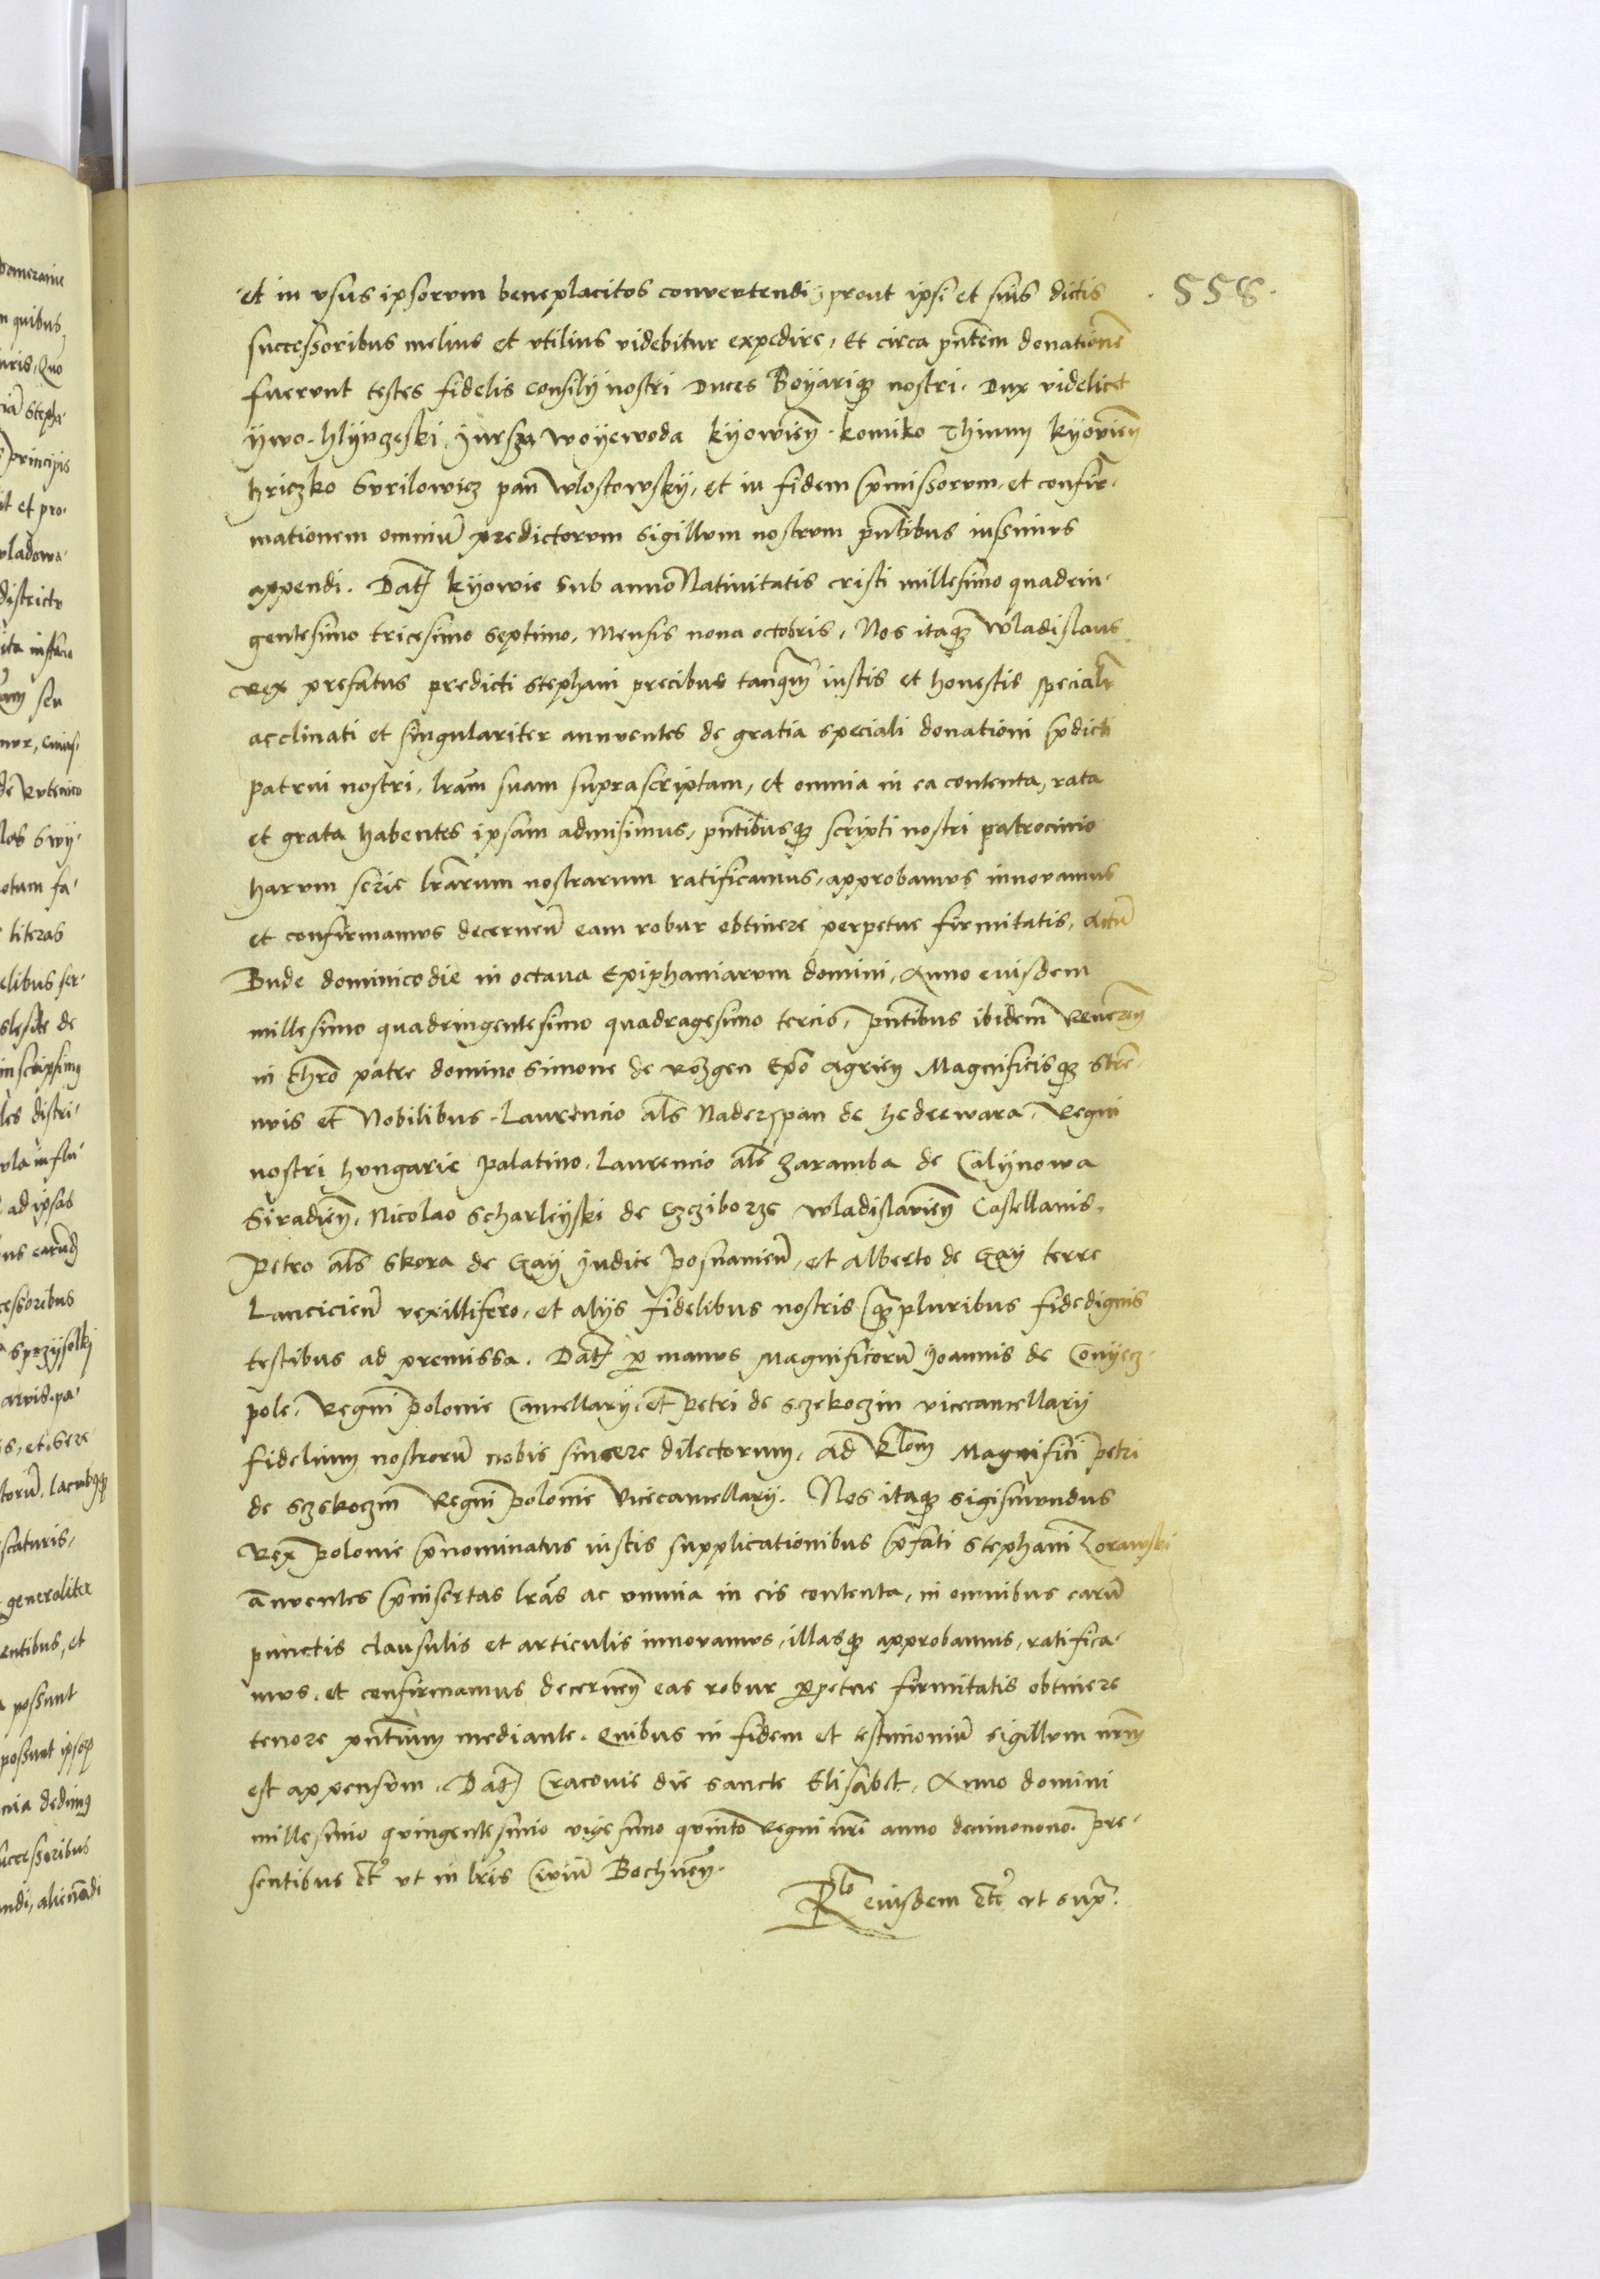 et in vsus ipsorum beneplacitos convertendi, prout ipsi et suis dictis
558
successoribus melius et vtilius videbitur expedire, Et circa pntem donationem
fuerunt testes fidelis consilij nostri Duces Boyariqz nostri. Dux videlicet
ywo. hlynczeski, Jursza woyewoda kyowien. komiko Thiuun kyowien
hriczko Gvrilowicz pan wlostowsky, et in fidem pmissorum, et confir-
mationem omniu predictorum sigillum nostrum pntibus iussimus
appendi. Dat kyowie sub anno Natiuitatis cristi millesimo quadrin-
gentesimo tricesimo septimo, Mensis nona octobris, Nos itaqz Wladislaus
Rex prefatus predicti stephani precibus tanqm iustis et honestis specialr
acclinati et singulariter annuentes de gratia speciali donationi pdicti
patrui nostri, lram suam suprascriptam, et omnia in ea contenta, rata
et grata habentes ipsam admisimus, pntibusqz scripti nostri patrocinio
harum serie lrarum nostrarum ratificamus, approbamus innouamus
et confirmamus decernen eam robur obtinere perpetue firmitatis, Actu
Bude dominico die in octaua Epiphaniarum domini, Anno euisdem
millesimo quadringentesimo quadragesimo tercio, pntibus ibidem Reueren
in chro patre domino Simone de Rozgen Epo Agrien Magnificisqz stre-
nuis et Nobilibus. Laurencio als Naderzpan de hedrewara, Regni
nostri hungarie palatino, Laurencio als Zaramba de Calynowa
Siradien, Nicolao Scharleyski de Czciborze wladislauien Castellanis,
Petro als Skora de Gay Judice Posnanien, et Alberto de Gay terre
Lancicien vexillifero, et alijs fidelibus nostris qzpluribus fidedignis
testibus ad premissa. Dat p manus Magnificoru Joannis de Conyecz-
pole, Regni polonie Cancellarij, et Petri de Szekoczin vicecancellarij
fidelium nostroru nobis sincere dilectorum, ad Rlom Magnifici petri
de Szekoczin Regni polonie Vicecancellarij. Nos itaqz Sigismundus
Rex polonie pnominatus iustis supplicationibus pfati stephani Lorawski
annuentes pinsertas lras ac omnia in eis contenta, in omnibus earu
punctis clausulis et articulis innouamus, illasqz approbamus, ratifica-
mus, et confirmamus decernen eas robur ppetue firmitatis obtinere
tenore pntium mediante. Quibus in fidem et testimoniu sigillum nrm
est appensum. Dat Cracouie die sancte Elisabet, Anno domini
millesimo quingentesimo vigesimo quinto Regni nri anno decimonono. Pre-
sentibus etc vt in lris Ciuiu Bochnen.
Rlo eiusdem etc vt supra.